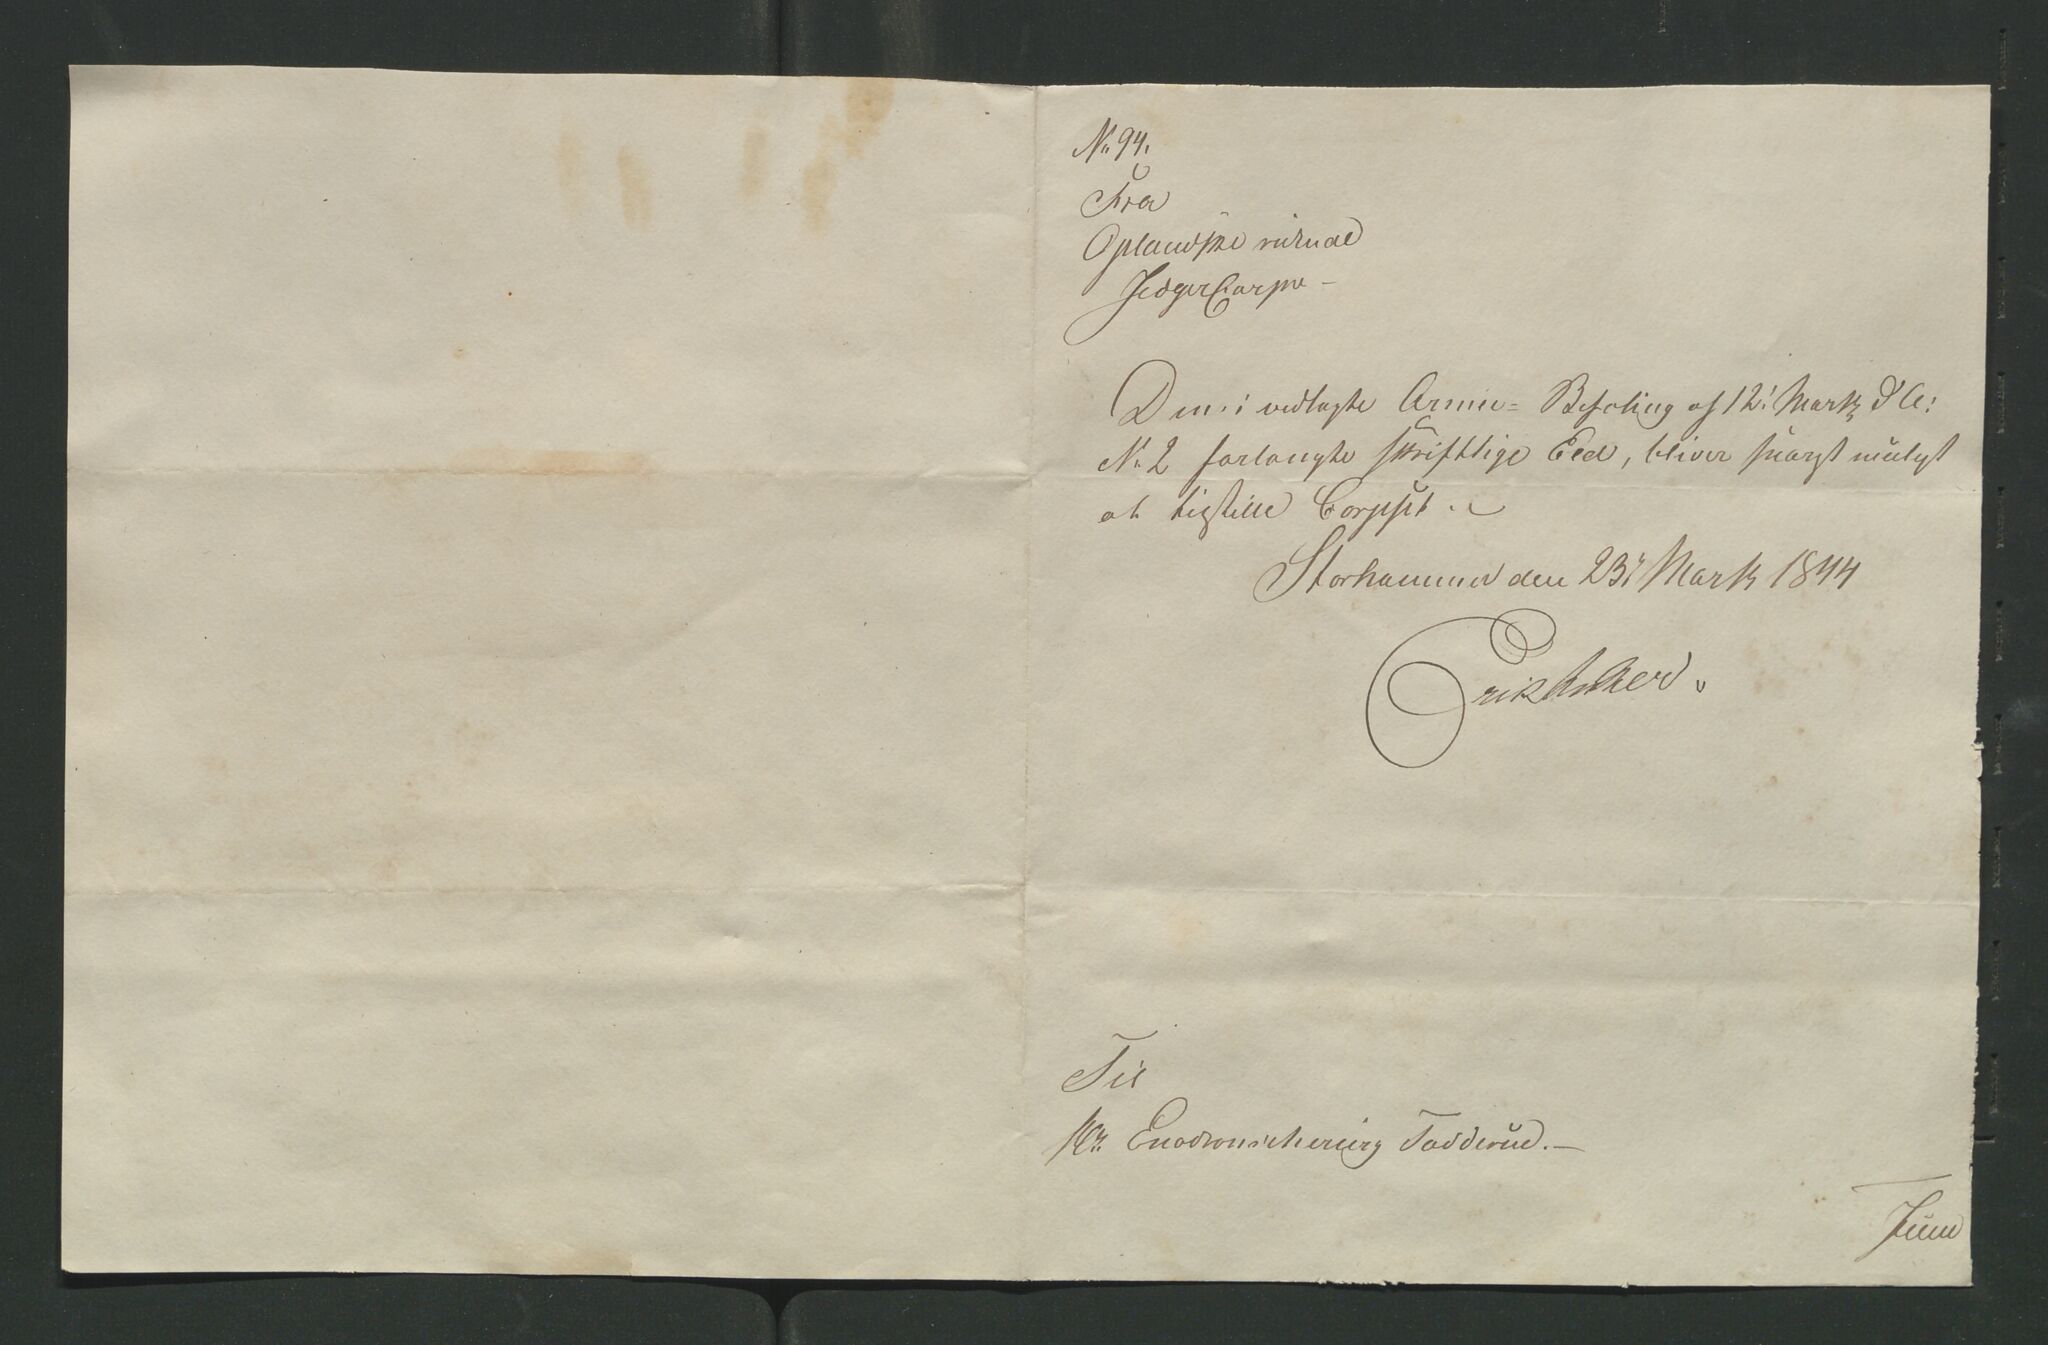 No 94.
Fra
Oplandske ridende
JægerCorps –
Den i vedlagte Armee= Befaling af 12' Marts d A:
No 2 forlangte skriftlige Eed, bliver snarest muligt
at tilstille Corpset.
Storhammer den 23' Marts 1844
Til
Hr. Todderud. –